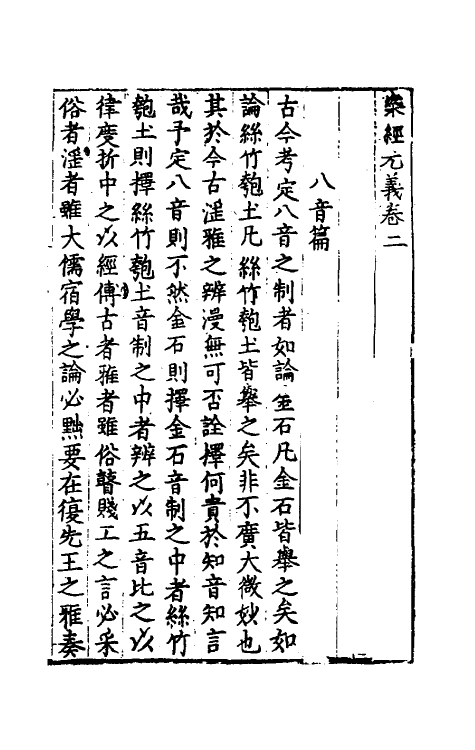 樂經元義卷二
八音篇
古今考定八音之制者如論金石凡金石皆舉之矣如
論絲竹匏土凡絲竹匏土皆舉之矣非不廣大微妙也
其於今古淫雅之辨漫無可否詮擇何貴於知音知言
哉予定八音則不然金石則擇金石音制之中者絲竹
匏土則擇絲竹匏土音制之中者辨之以五音比之以
律度折中之以經傳古者雅者雖俗瞽賤工之言必采
俗者淫者雖大儒宿學之論必黜要在復先王之雅奏